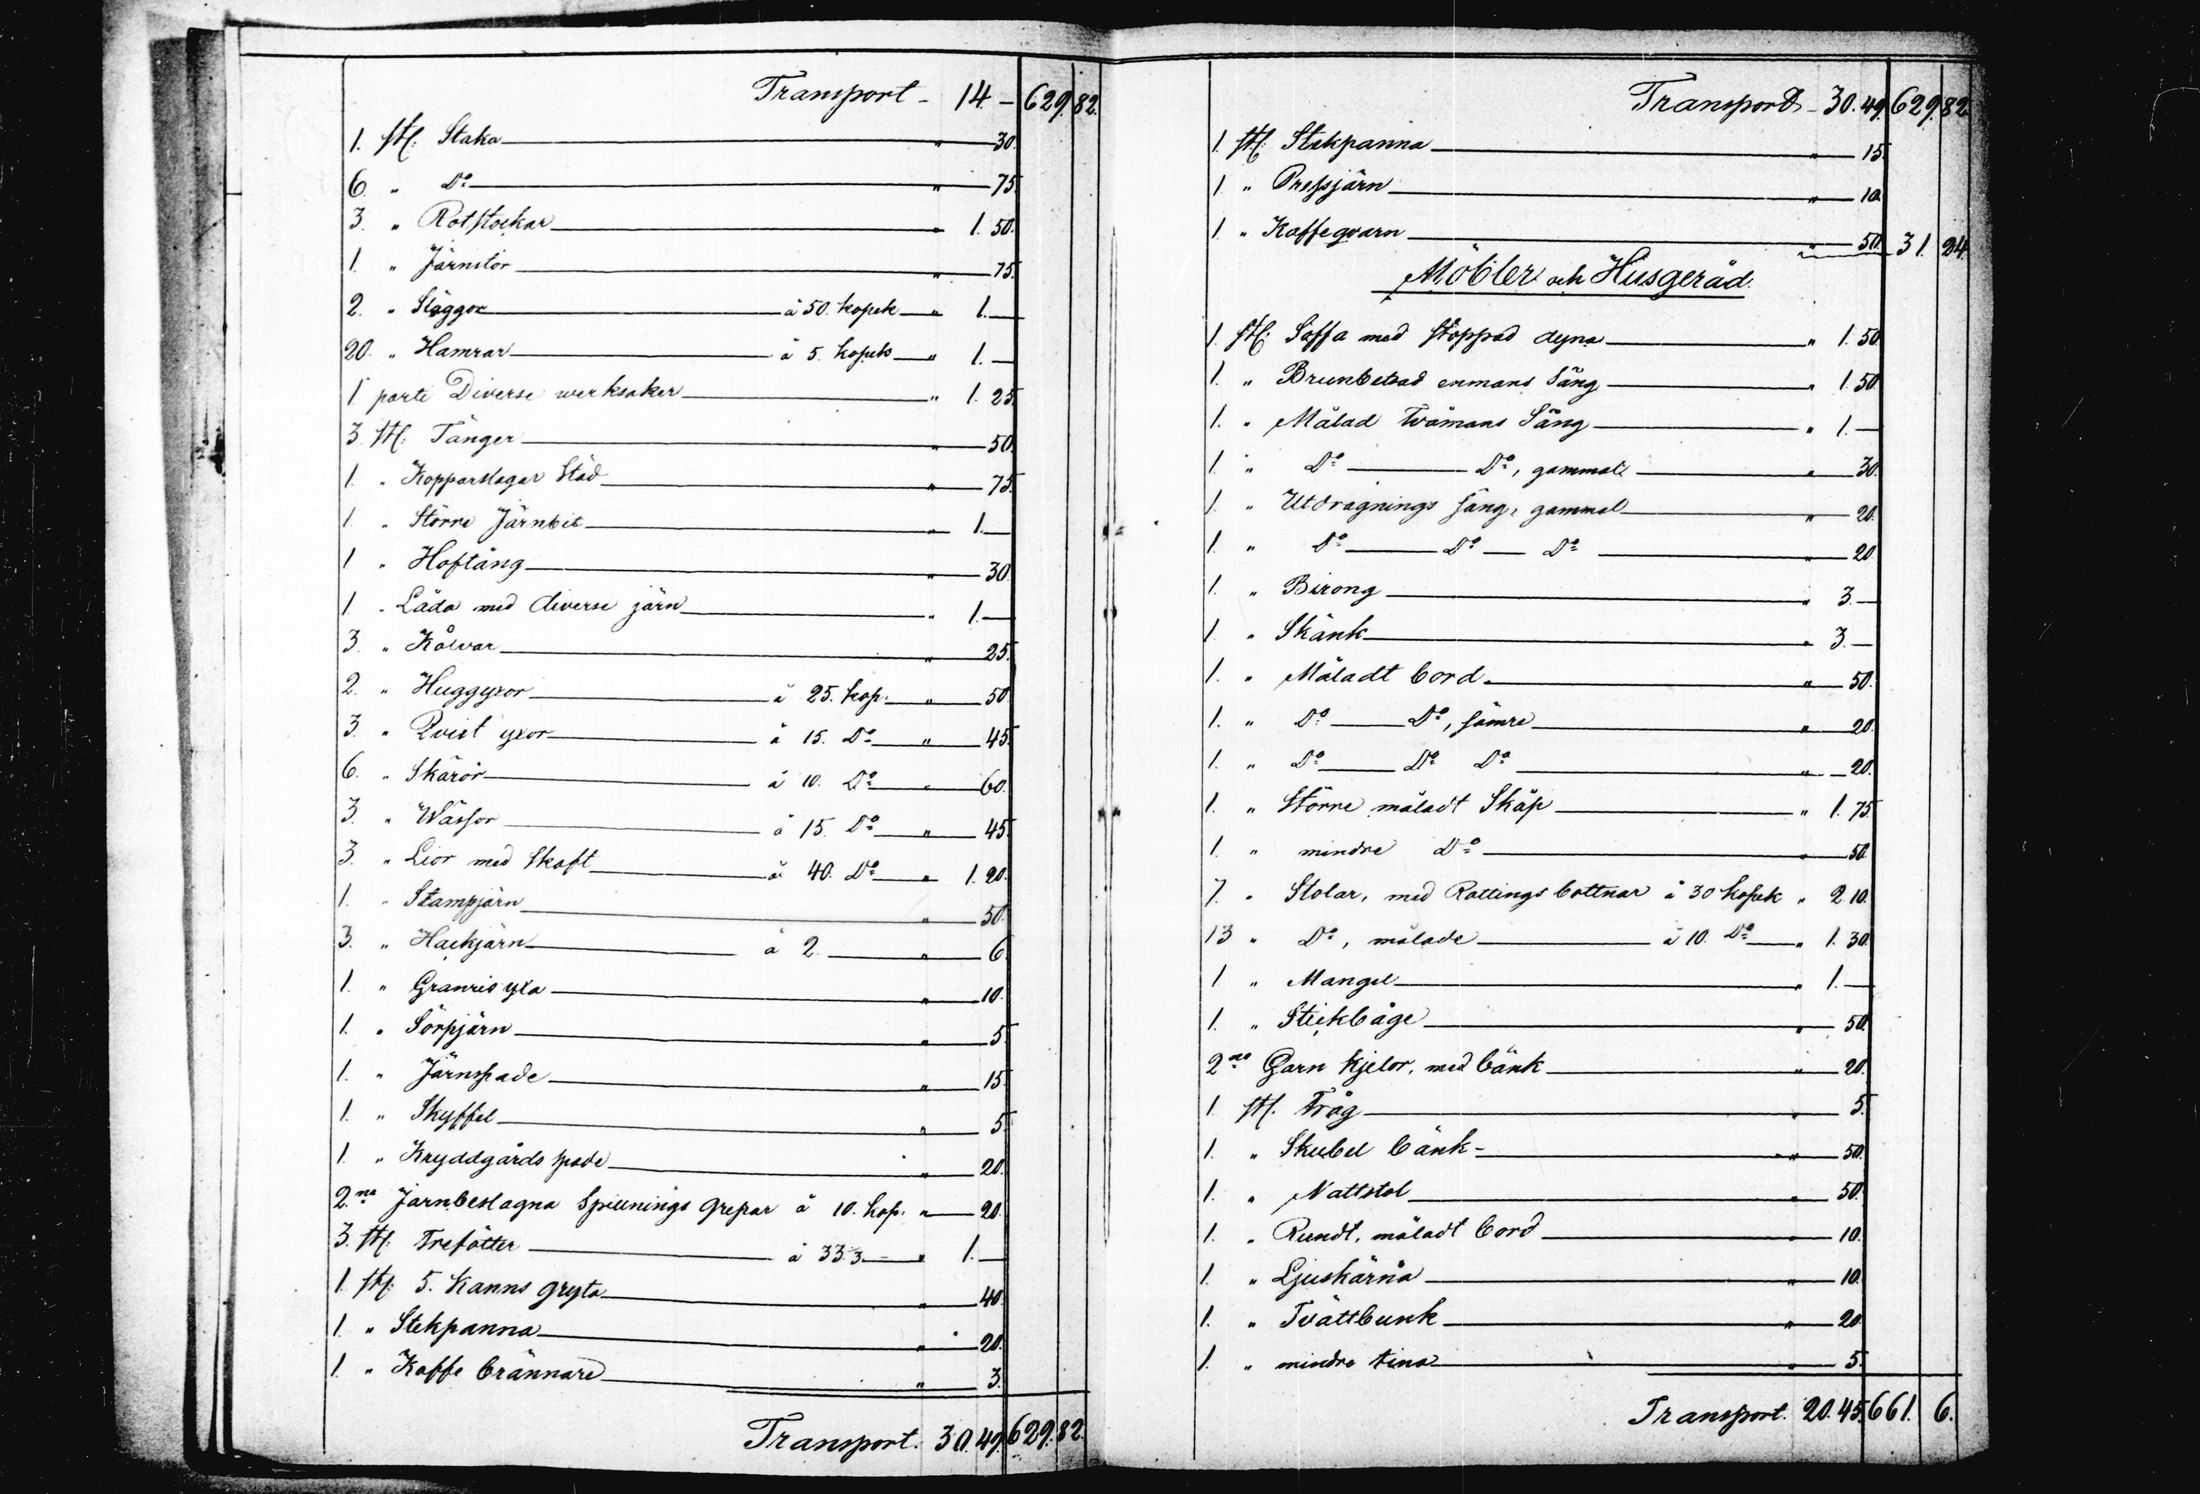 Transport - 14 - 629. 82.
1. st. Staka " 30.
6 " Do " 75
3. " Rotstockar " 1. 50.
1. " Järnstör " 75.
2. " Släggor à 50. kopek " 1. —
20. " Hamrar à 5. kopek " 1. —
1 parti Diverse werksaker " 1. 25.
3. st. Tänger " 50.
1. " Kopparslagar Städ " 75.
1. " Större Järnbit " 1. —
1 " Hoftång " 30.
1 " Låda med diverse järn " 1. —
3. " Kålvar " 25.
2. " Huggyxor à 25. kop. " 50
3. " Qvist yxor à 15. Do " 45.
6. " Skäror à 10. Do " 60.
3. " Wässor à 15. Do " 45.
3. " Lior med Skaft à 40. Do " 1. 20.
1. " Stampjärn " 50.
3. " Hackjärn à 2. " 6.
1. " Granris yxa " 10.
1. " Sörpjärn " 5.
1. " Järnspade " 15.
1. " Skyffel " 5.
1. " Kryddgårds spade " 20.
2.na Järnbeslagna Spillnings grepar à 10. kop. " 20.
3. st. Trefötter à 33⅓ " 1. —
1. st. 5. Kanns gryta " 40.
1. " Stekpanna " 20.
1. " Kaffe brännare " 3.
Transport. 30. 49. 629. 82.
Transport - 30. 49. 629. 82.
1. st. Stekpanna " 15.
1 " Pressjärn " 10.
1 " Kaffeqvarn " 50. 31. 24.
Möbler och Husgeråd.
1. st. Soffa med stoppad dyna " 1. 50.
1. " Brunbetsad enmans Säng " 1. 50
1. " Målad tvåmans Säng " 1. —
1 " Do Do, gammal " 30.
1. " Utdragnings säng, gammal " 20.
1. " Do Do Do " 20.
1. " Birong " 3. —
1. " Skänk " 3. —
1. " Måladt bord " 50.
1. " Do Do, sämre " 20.
1. " Do Do Do " 20.
1. " Större måladt Skåp " 1. 75.
1. " mindre Do " 50.
7. " Stolar, med Rottings bottnar à 30 kopek " 2. 10.
13 " Do, målade à 10. Do " 1. 30.
1 " Mangel " 1. —
1. " Stickbåge " 50.
2na Garn kjelor, med bänk " 20.
1. st. Tråg " 5.
1. " Skubel bänk - " 50.
1. " Nattstol " 50.
1. " Rundt, måladt bord " 10.
1. " Ljuskärna " 10.
1. " Tvättbunk " 20.
1. " mindre tina " 5.
Transport. 20. 45. 661. 6.